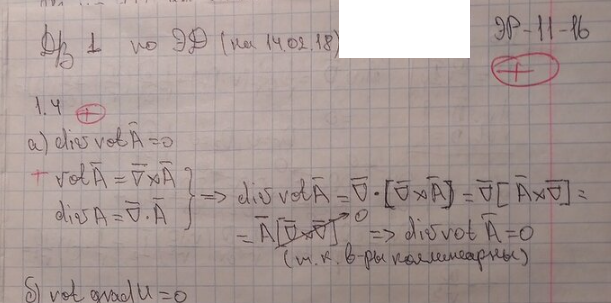 ДЗ 1 по ЭД (на 14.02.18)
ЭР-11-16
+
1.4 +
а) div rot Ā = 0
+ rot Ā = ∇̄ × Ā
div A = ∇̄ · Ā } => div rot Ā = ∇̄ · [∇̄ × Ā] = ∇̄ [Ā × ∇̄] =
= Ā [∇̄ × ∇̄] 0 => div rot Ā = 0
(т.к. в-ры коллинеарны)
б) rot grad U = 0